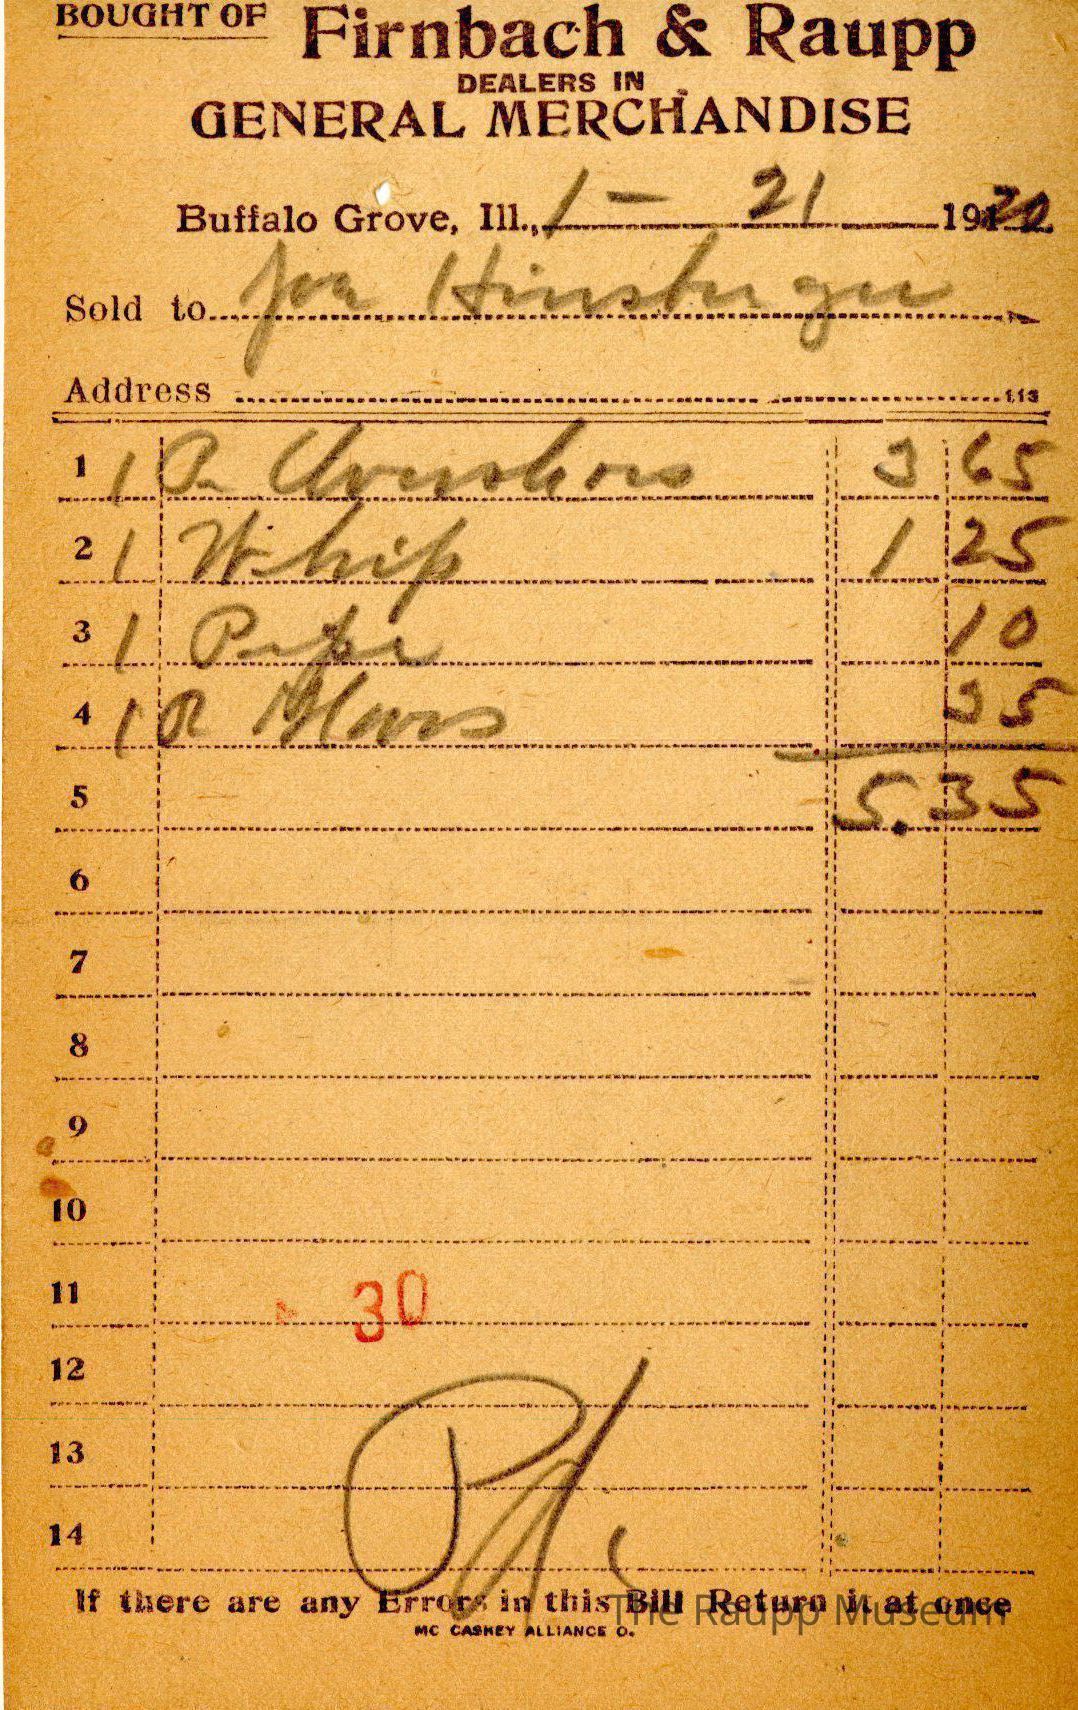 BOUGHT OF Firnbach & Raupp
DEALERS IN
GENERAL MERCHANDISE
Buffalo Grove, Ill., 1 - 21 1920
Sold to Joe Hinsberger
Address 113
1 1 Pr Overshoes 3 65
2 1 Whip 1 25
3 1 Pipe 10
4 1 Pr Gloves 35
5 5.35
6
7
8
9
10
11 30
12
13
14
If there are any Errors in this Bill Return it at once
The Raupp Museum
MC CASKEY ALLIANCE O.